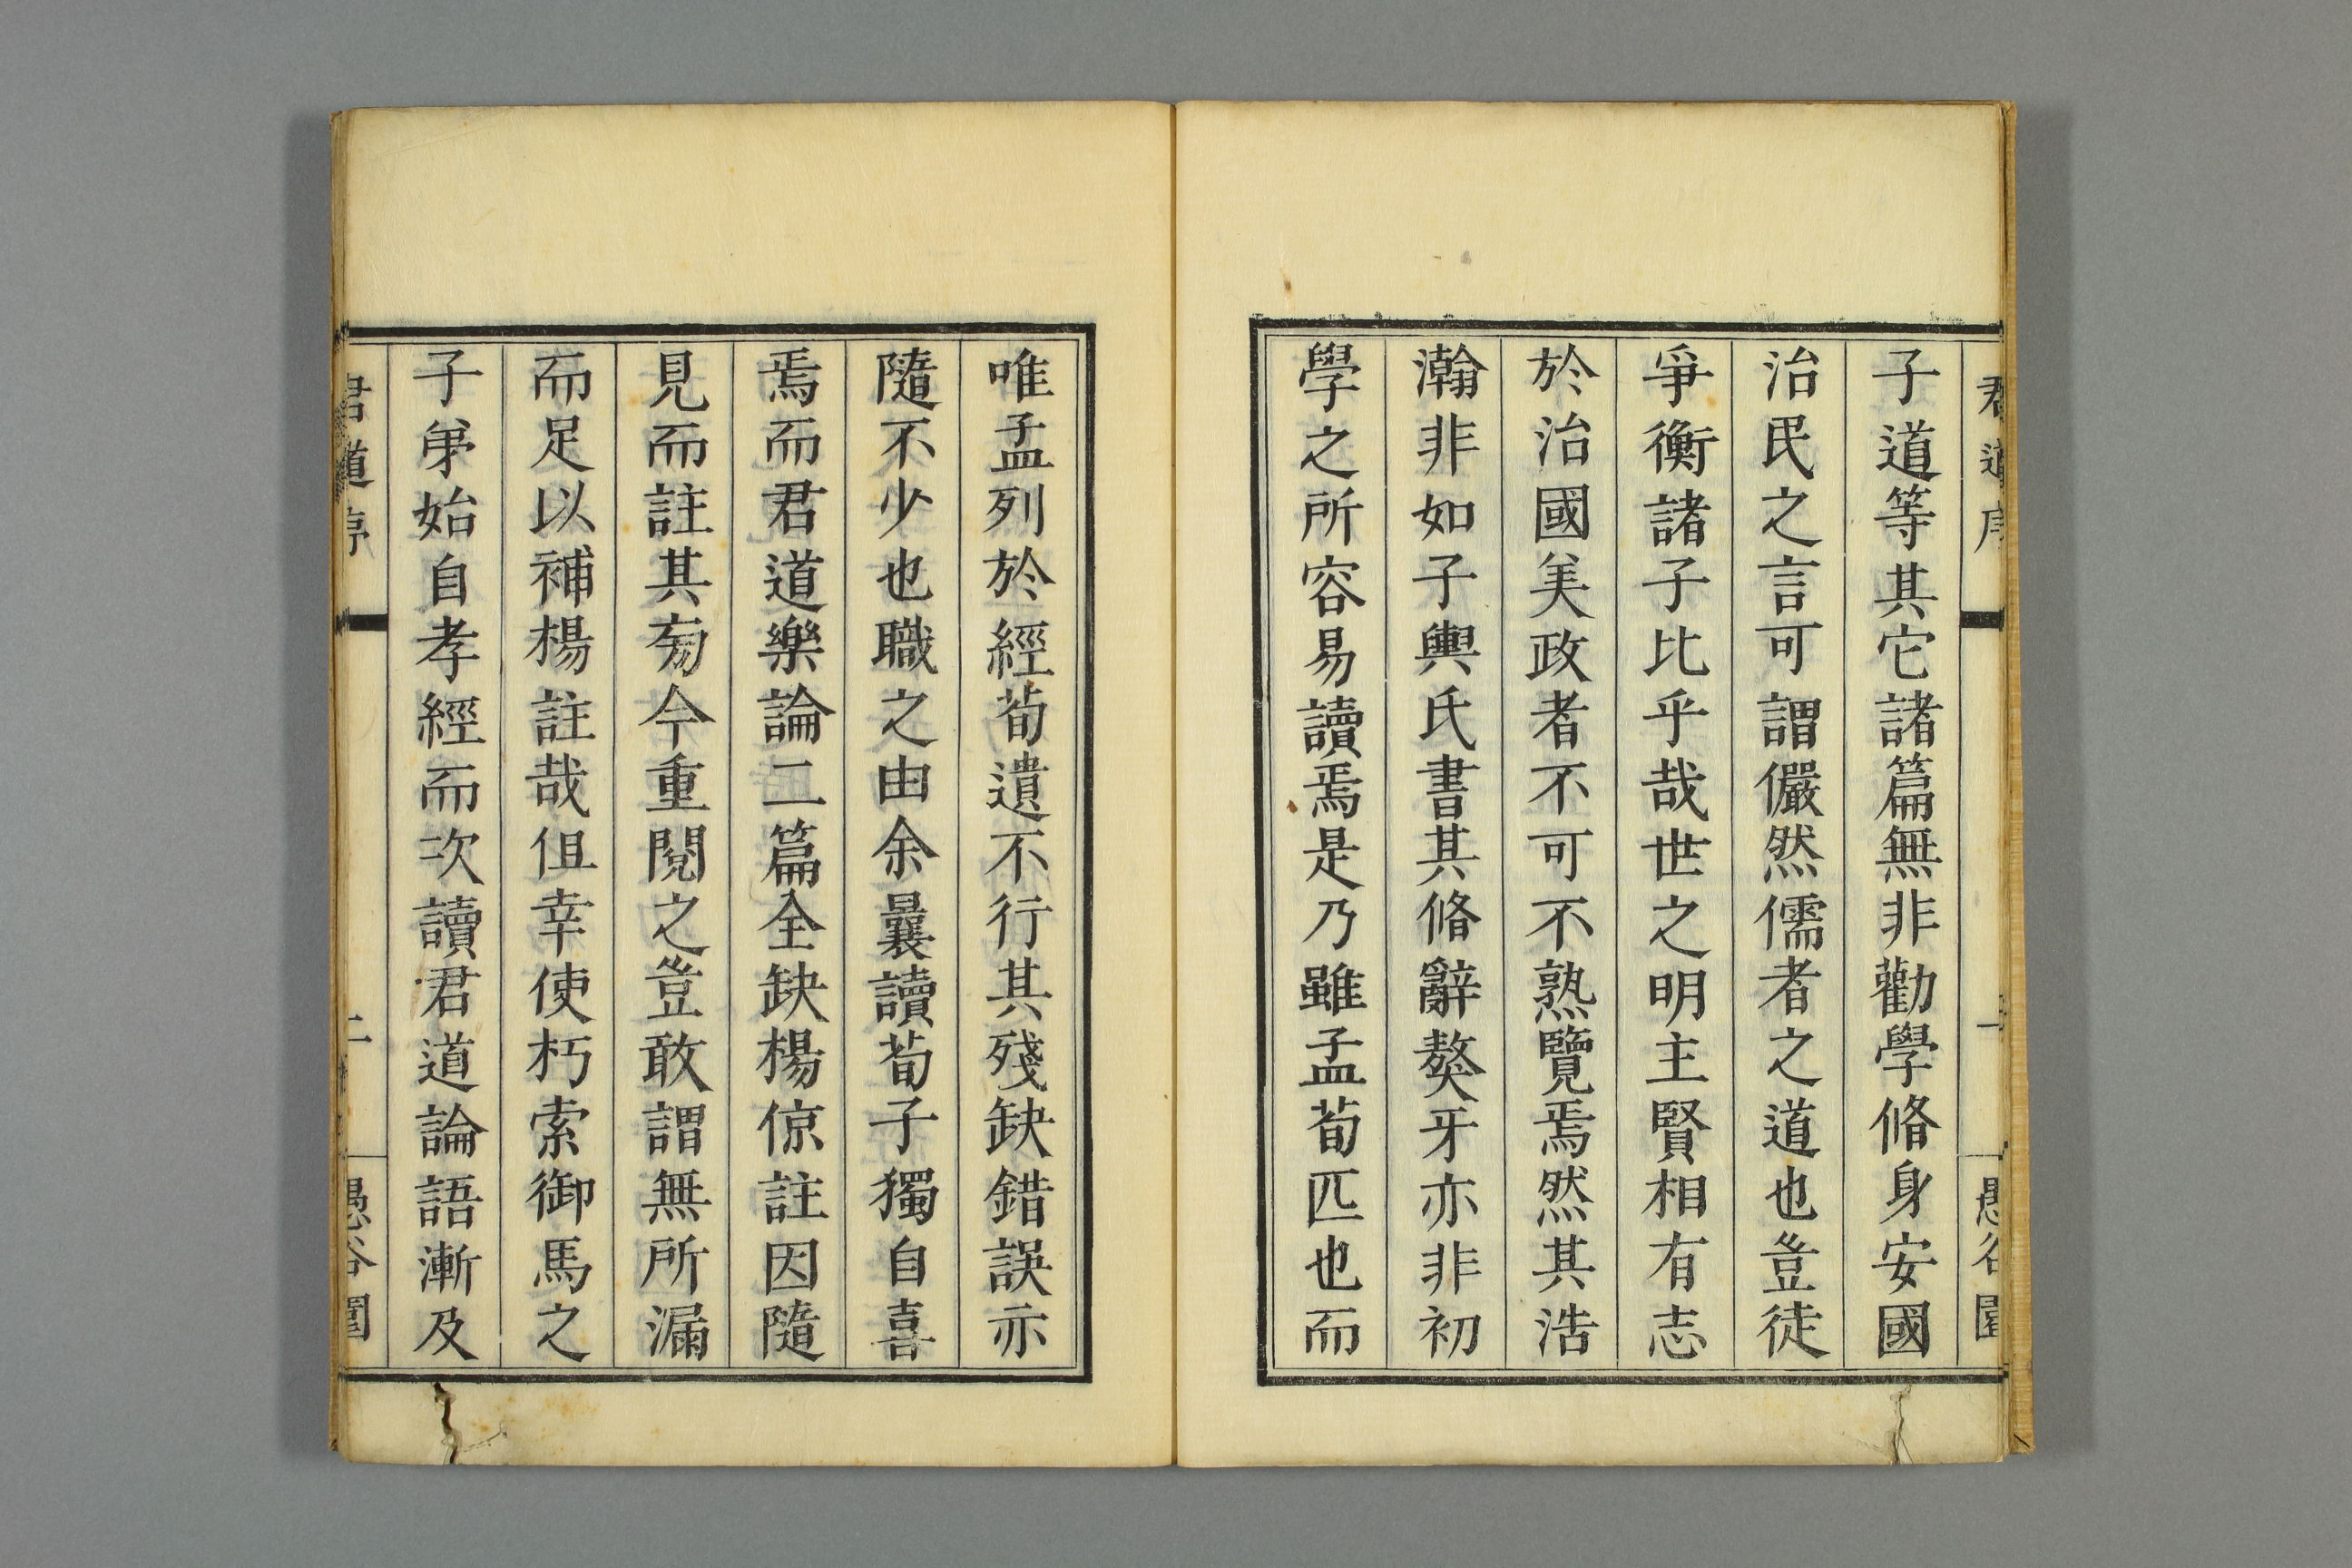 子道等其它諸篇無非勸學脩身安國
治民之言可謂儼然儒者之道也豈徒
爭衡諸子比乎哉世之明主賢相有志
於治國美政者不可不熟覽焉然其浩
瀚非如子輿氏書其脩辭獒牙亦非初
學之所容易讀焉是乃雖孟荀匹也而
唯孟列於經荀遺不行其殘缺錯誤亦
隨不少也職之由余曩讀荀子獨自喜
焉而君道樂論二篇全缺楊倞註因隨
見而註其旁今重閱之豈敢謂無所漏
而足以補楊註哉但幸使朽索御馬之
子弟始自孝經而次讀君道論語漸及
君道序
二
愚谷園